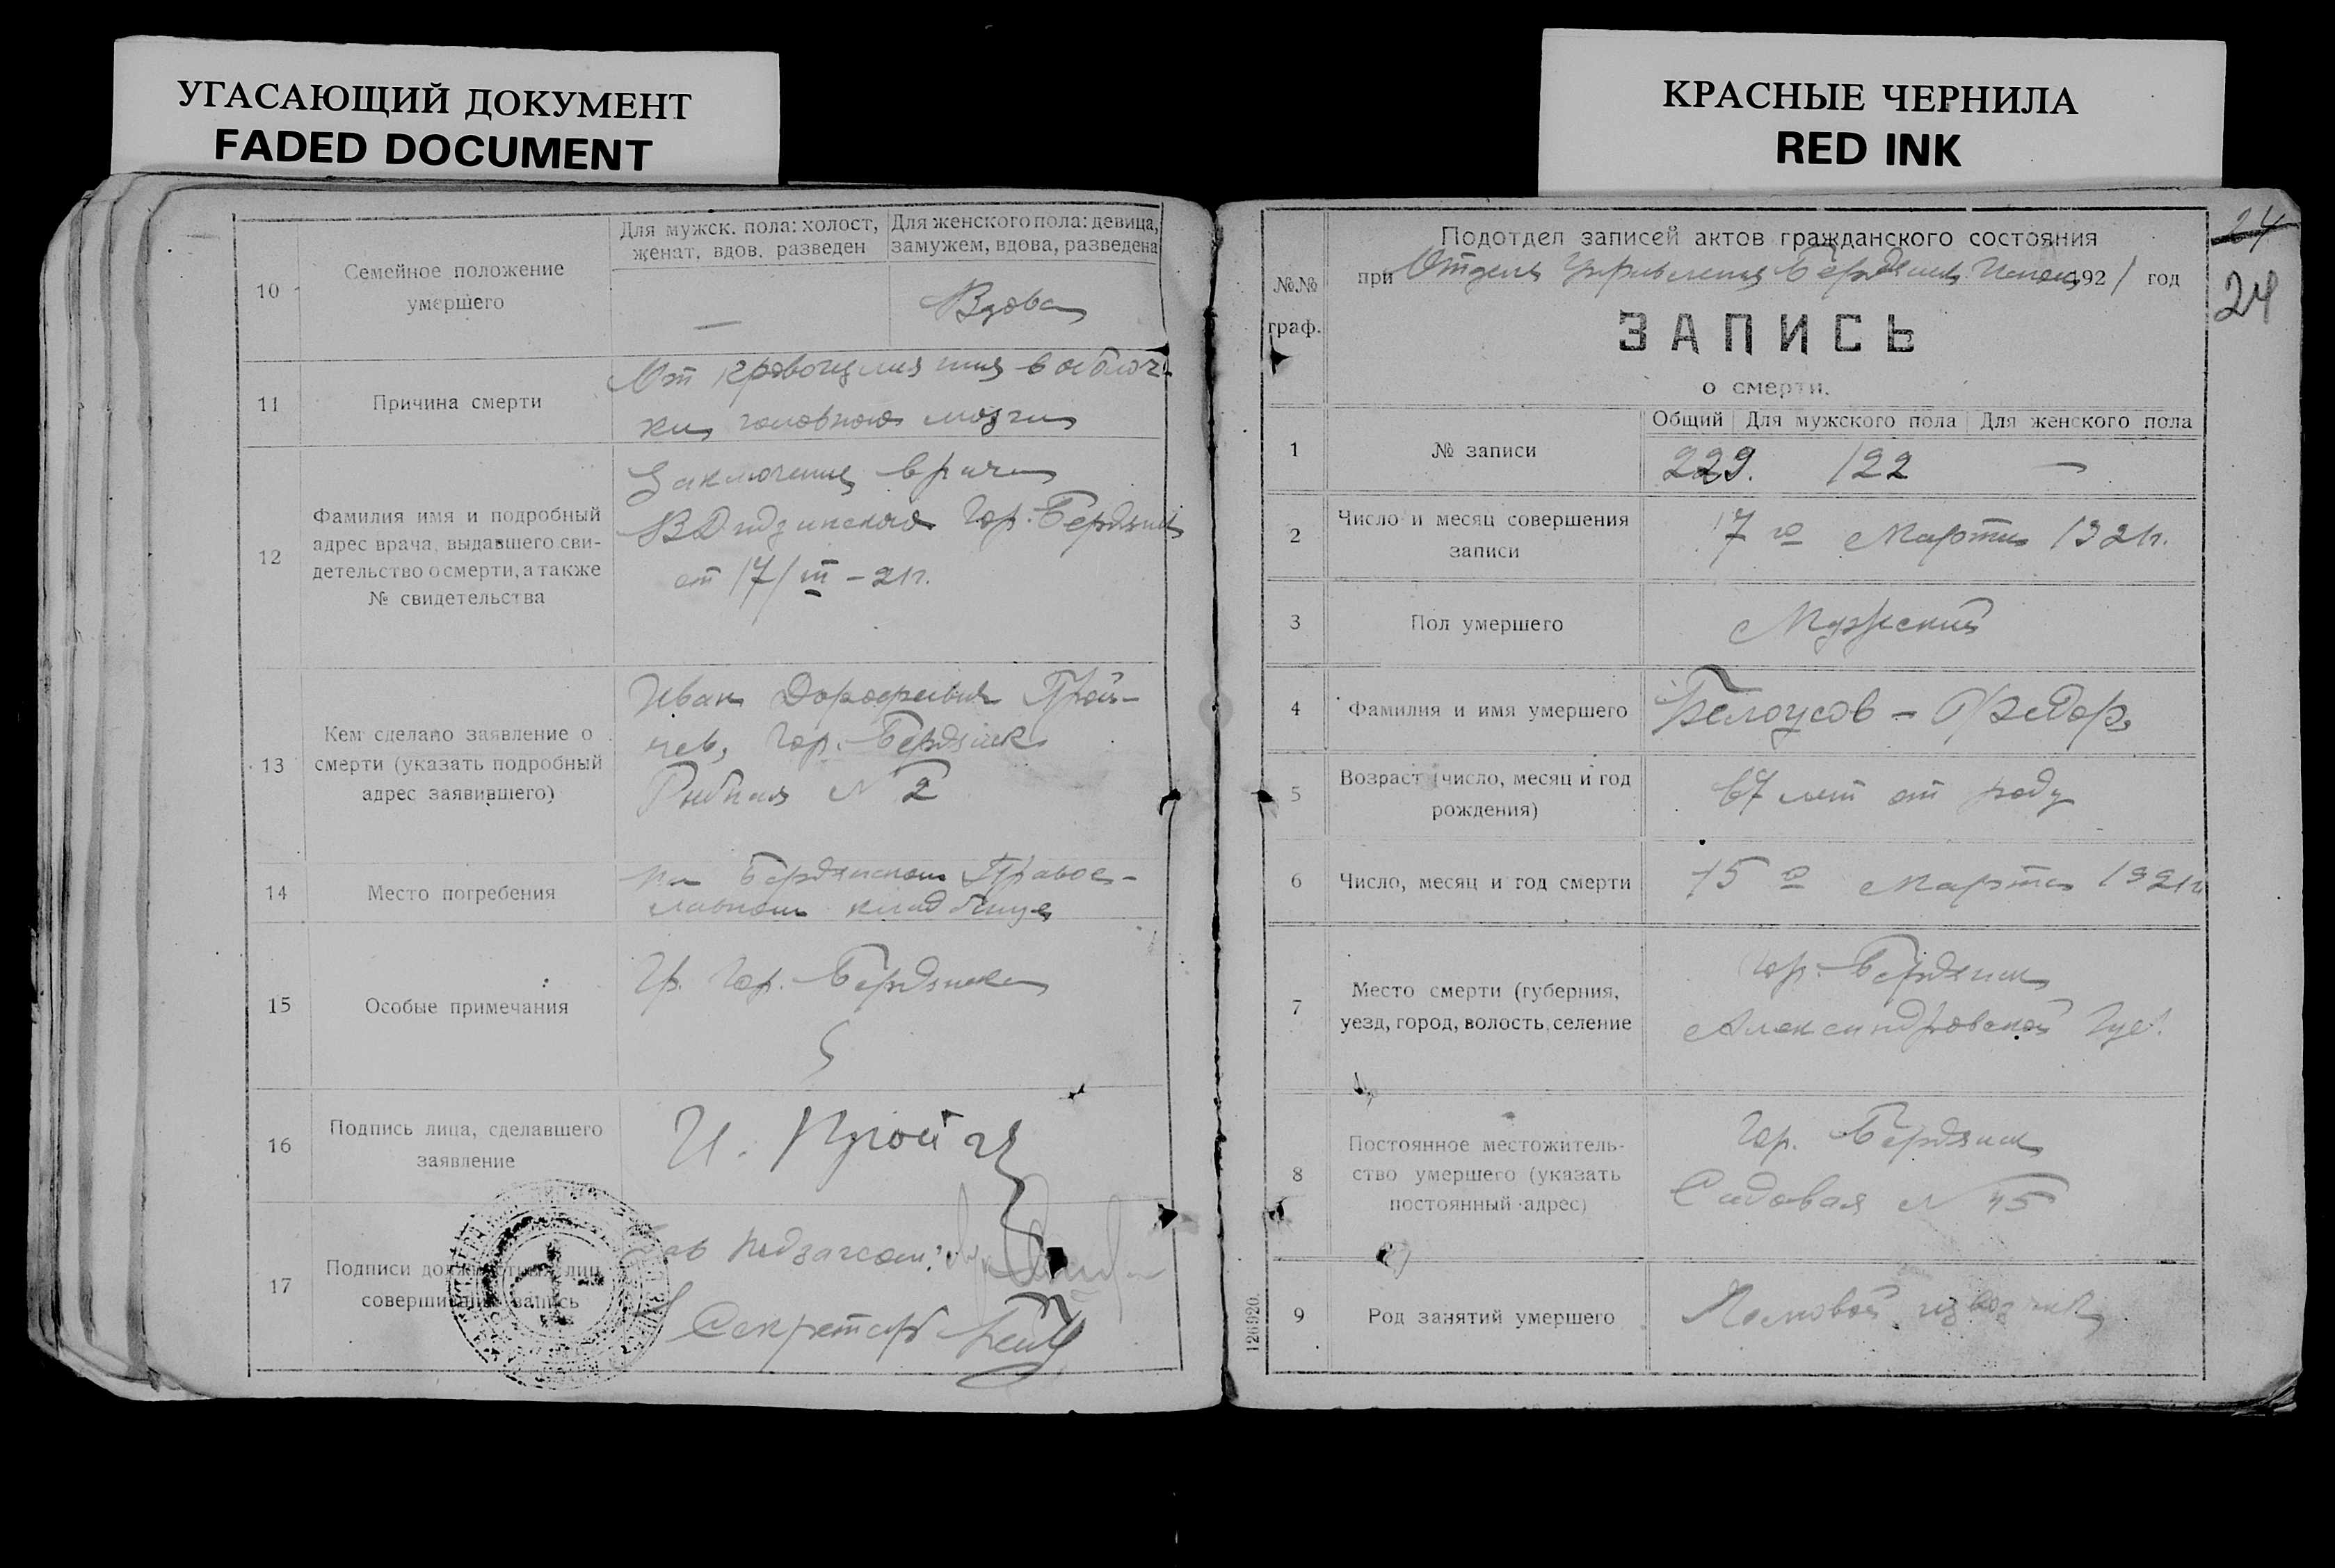 УГАСАЮЩИЙ ДОКУМЕНТ
FADED DOCUMENT
КРАСНЫЕ ЧЕРНИЛА
RED INK
10
Семейное положение
умершего
Для мужск. пола: холост,
женат, вдов. разведен
Для женского пола: девица,
замужем, вдова, разведена
—
Вдова
11
Причина смерти
От кровоизлияния в оболоч-
ки головного мозга
12
Фамилия имя и подробный
адрес врача, выдавшего сви-
детельство о смерти, а также
№ свидетельства
Заключение врача
Гор. Бердянск
от 17/III – 21г.
13
Кем сделано заявление о
смерти (указать подробный
адрес заявившего)
Иван Дорофеевич
Гор. Бердянск
Рыбная № 2
14
Место погребения
На Бердянском Правос-
лавном кладбище
15
Особые примечания
Гр. Гор. Бердянска
16
Подпись лица, сделавшего
заявление
И.
17
Подписи должностных лиц
совершивших запись
Секретарь
24
24
№№
граф.
Подотдел записей актов гражданского состояния
при Отделе Управления Бердянск. 1921 год
ЗАПИСЬ
о смерти.
1
№ записи
Общий
Для мужского пола
Для женского пола
229.
122
—
2
Число и месяц совершения
записи
17го Марта 1921г.
3
Пол умершего
Мужский
4
Фамилия и имя умершего
Белоусов – Федор
5
Возраст (число, месяц и год
рождения)
67 лет от роду
6
Число, месяц и год смерти
15го Марта 1921г
7
Место смерти (губерния,
уезд, город, волость, селение
Гор. Бердянск
Александровской Губ.
8
Постоянное местожитель-
ство умершего (указать
постоянный адрес)
Гор. Бердянск
Садовая № 45
9
Род занятий умершего
Ломовой извозчик
126920.